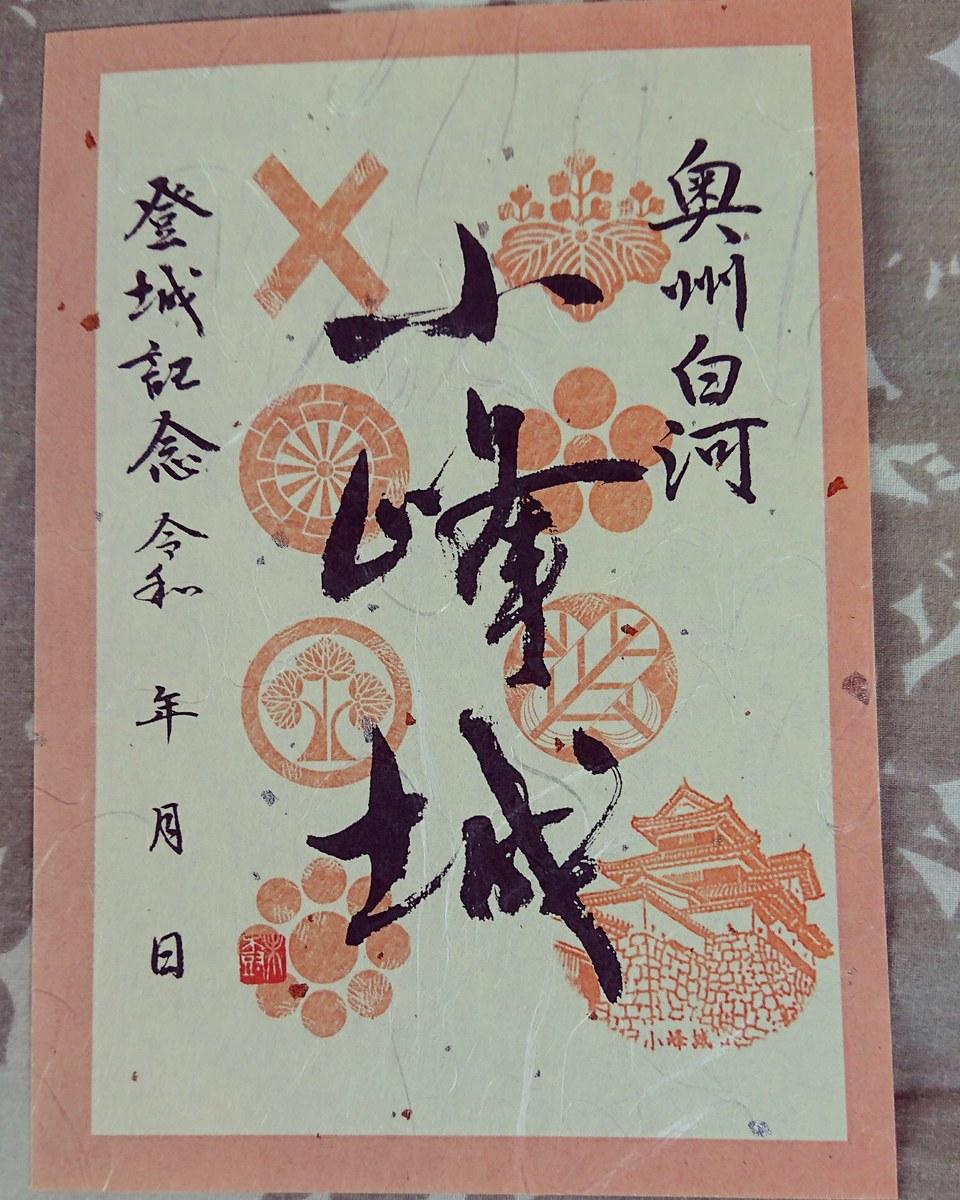 奥州白河
小峰城
登城記念 令和 年 月 日
小峰城